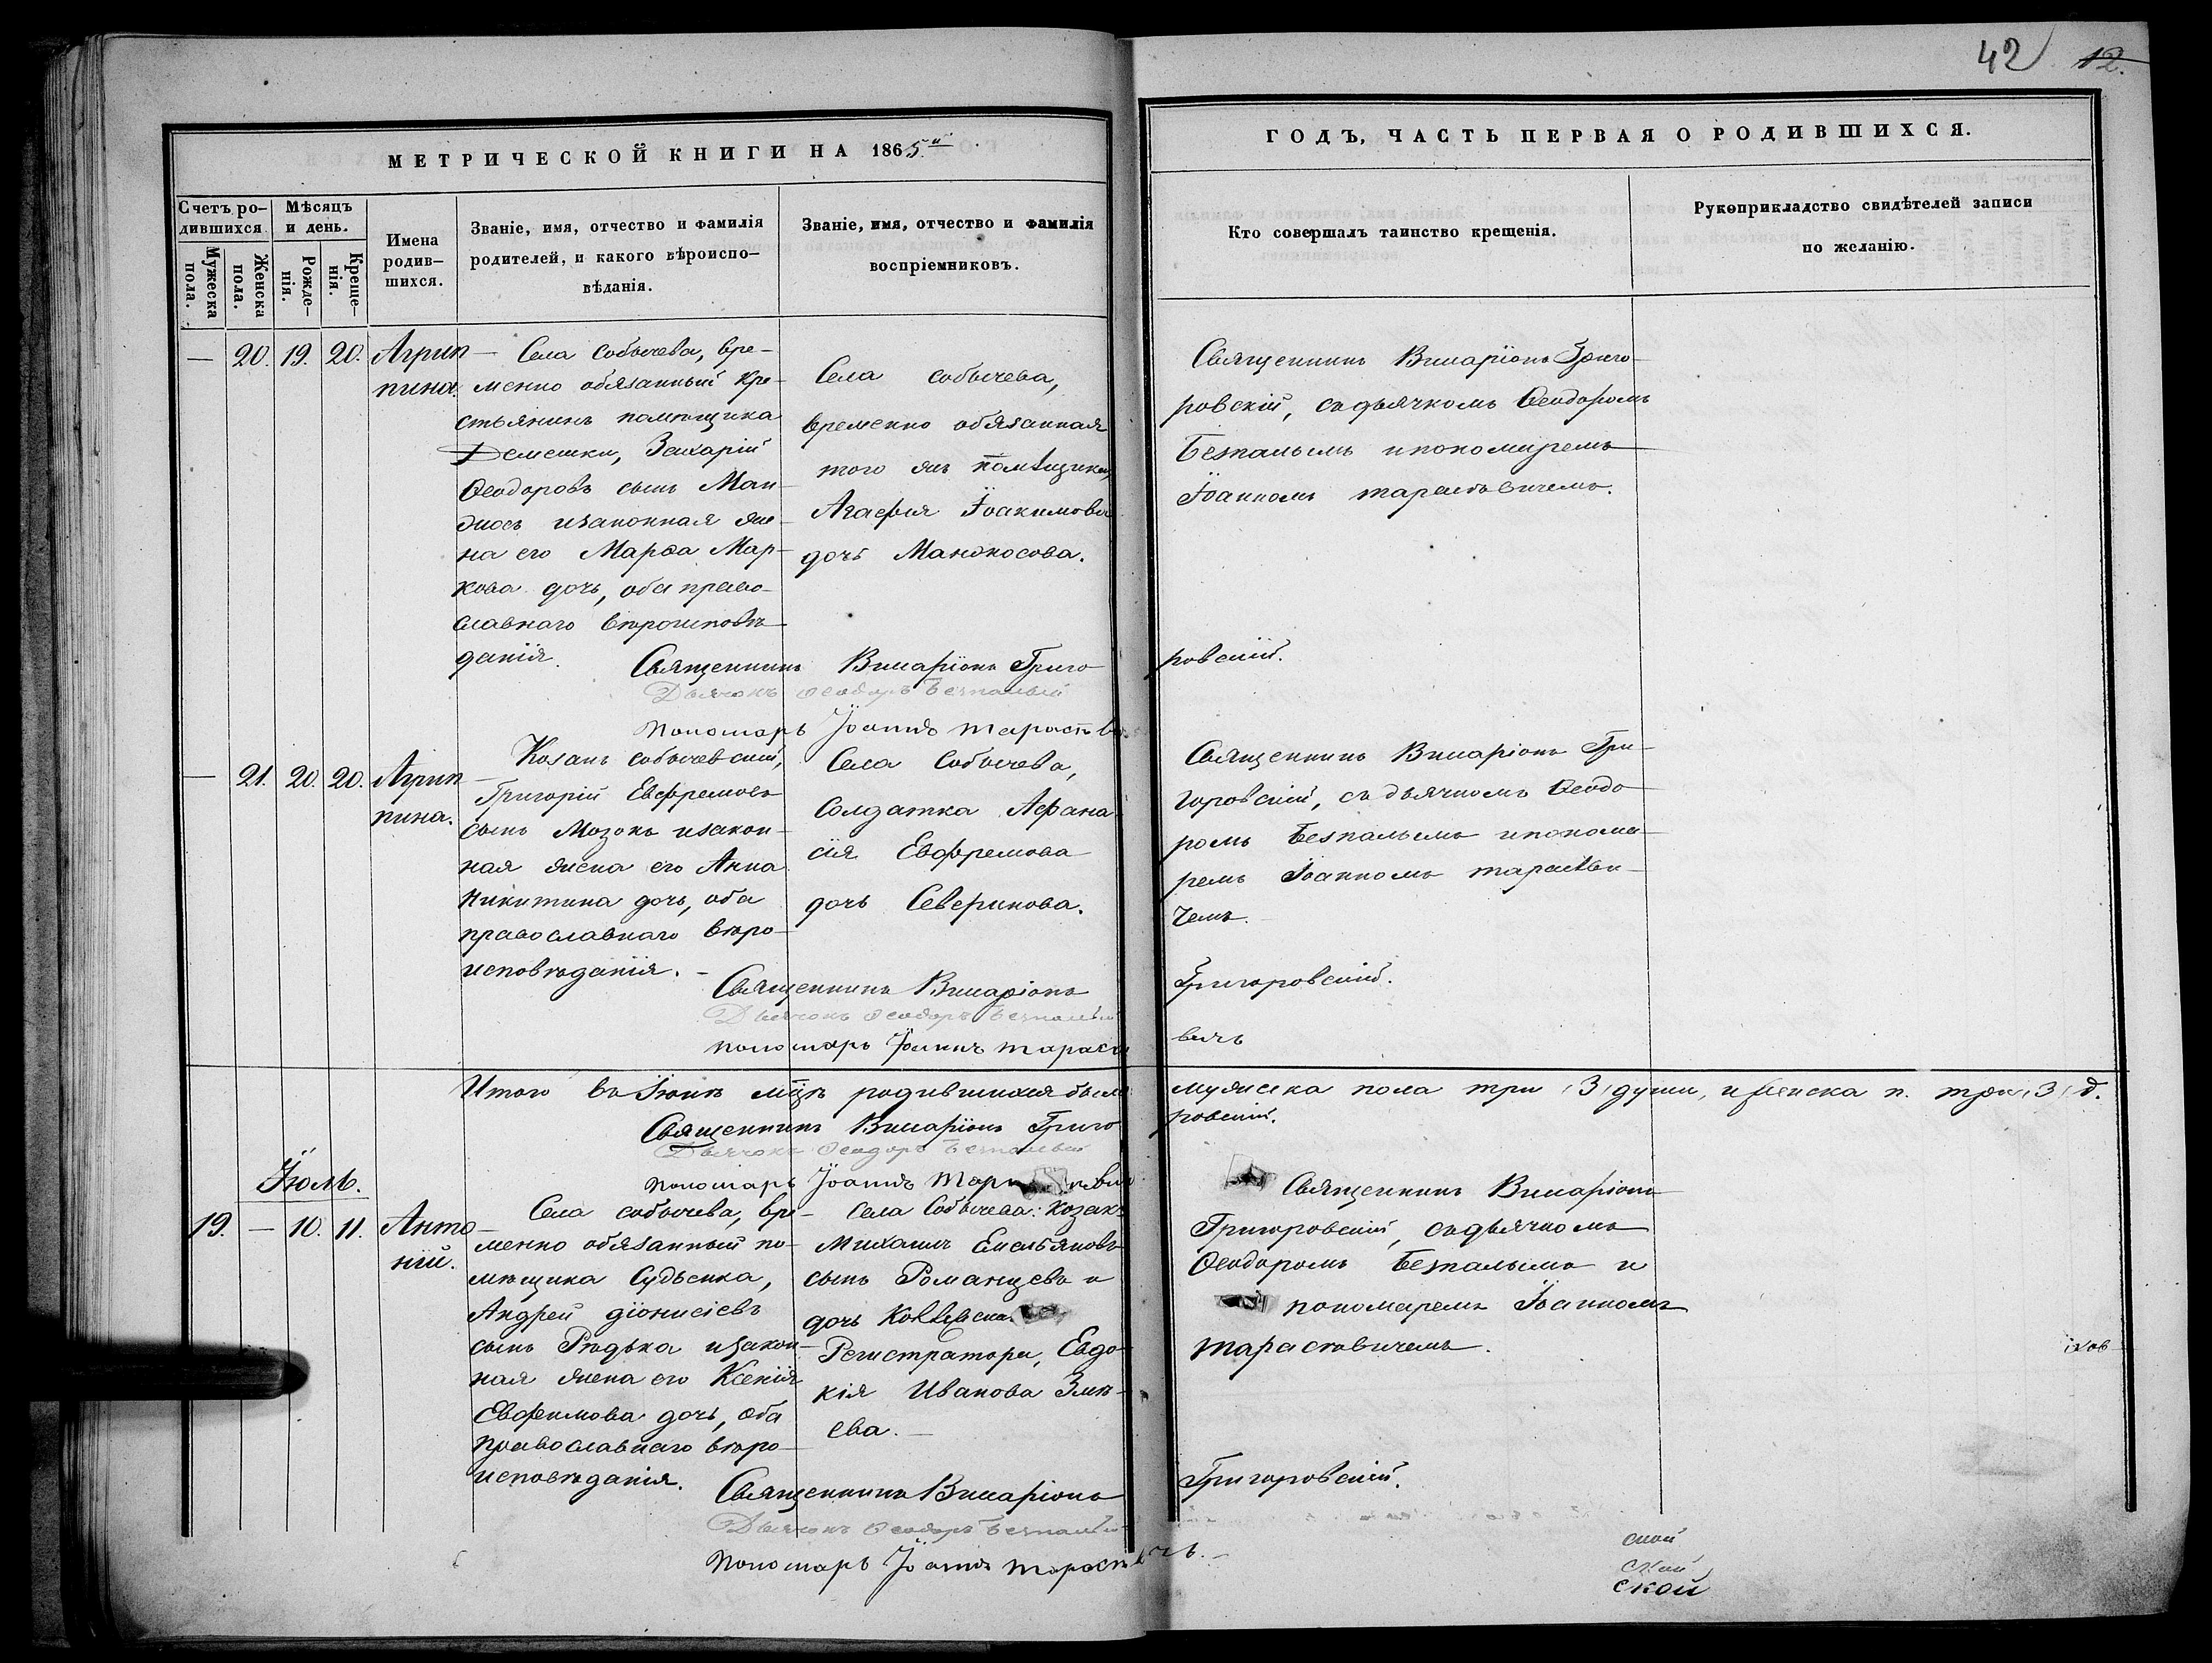 42 12.
МЕТРИЧЕСКОЙ КНИГИ НА 1865й
ГОДЪ, ЧАСТЬ ПЕРВАЯ О РОДИВШИХСЯ.
Счетъ ро-
дившихся
Мужеска
пола.
Женска
пола.
Мѣсяцъ
и день.
Рожде-
нія.
Креще-
нія.
Имена
родив-
шихся.
Званіе, имя, отчество и фамилія
родителей, и какого вѣроиспо-
вѣданія.
Званіе, имя, отчество и фамилія
воспріемниковъ.
Кто совершалъ таинство крещенія.
Рукоприкладство свидѣтелей записи
по желанію.
— 20. 19. 20.
Агрип-
пина.
Села Собычева, вре-
менно обязанный кре-
стьянинъ помѣщика
Демешки, Захарій
Ѳеодоровъ сынъ Ман-
изаконная же-
на его Марѳа Мар-
кова дочь, оба право-
славнаго вѣроисповѣ-
данія.
Села Собычева,
временно обязанная
того же помѣщика,
Агафія Іоакимова
дочь Манокосова.
Священникъ Виларіонъ Григо-
ровскій, съдьячкомъ Ѳеодоромъ
Безпалымъ ипономаремъ
Іоанномъ тарасевичемъ.
Священникъ Виларіонъ Григо-
ровскій.
Дьячокъ Ѳеодоръ Безпалый
Пономарь Іоаннъ
— 21. 20. 20.
Агрип-
пина.
Козакъ собычевскій,
Григорій Евфремовъ
сынъ Мозокъ изакон-
ная жена его Анна
Никитина дочь, оба
православнаго вѣро-
исповѣданія.
Села Собычева,
Солдатка Афана-
сія Евфремова
дочь Северинова.
Священникъ Виларіонъ Гри-
горовскій, съ дьячкомъ Ѳеодо-
ромъ Безпалымъ ипонома-
ремъ Іоанномъ
чемъ.
Священникъ Виларіонъ
Григоровскій.
Дьячокъ Ѳеодоръ Безпалый
пономарь Іоаннъ
вичъ
Итого въ Іюнѣ мцѣ родившихся было мужеска пола три (3) души, и женска п. три (3) д.
Священникъ Виларіонъ Григо-
ровскій.
Дьячокъ Ѳеодоръ Безпалый
пономарь Іоаннъ
Іюль.
19. — 10. 11.
Анто-
ній.
Села собычева, вре-
менно обязанный по-
мѣщика Судьенка,
Андрей діонисіевъ
сынъ Рѣдька изакон-
ная жена его Ксенія
Евфимова дочь, оба
православнаго вѣро-
исповѣданія.
Села Собычева: Козакъ
Михаилъ Емельяновъ
сынъ Романцевъ и
дочь
Регистратора, Евдо-
кія Иванова Змѣ-
ева.
Священникъ Виларіонъ
Григоровскій, съдьячкомъ
Ѳеодоромъ Безпалымъ и
пономаремъ Іоанномъ
тарасевичемъ.
Священникъ Виларіонъ
Григоровскій.
Дьячокъ Ѳеодоръ Безпалый
Пономарь Іоаннъ
ской
ской
ской